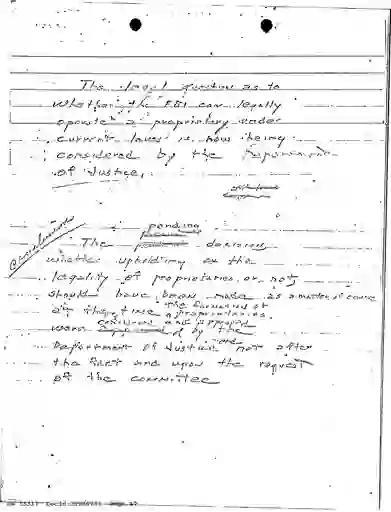 The legal question as to
whether the FBI can legally
operate a proprietary under
current laws is now being
considered by the Department
of Justice.
Conclusions
pending
The decision
whether upholding the
legality of proprietaries or not
should have been made as a matter of course
at the time the formation of
proprietaries
were and approved by the
Department of Justice and not after
the fact and upon the request
of the committee